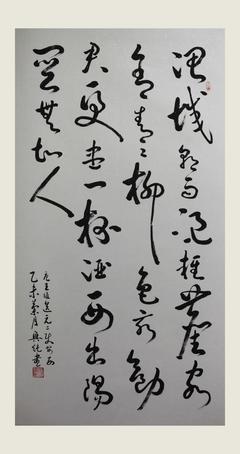 渭城朝雨浥輕塵客
舍青青柳色新勸
君更盡一杯酒西出陽
關無故人
唐王維送元二使安西
乙未 月 書